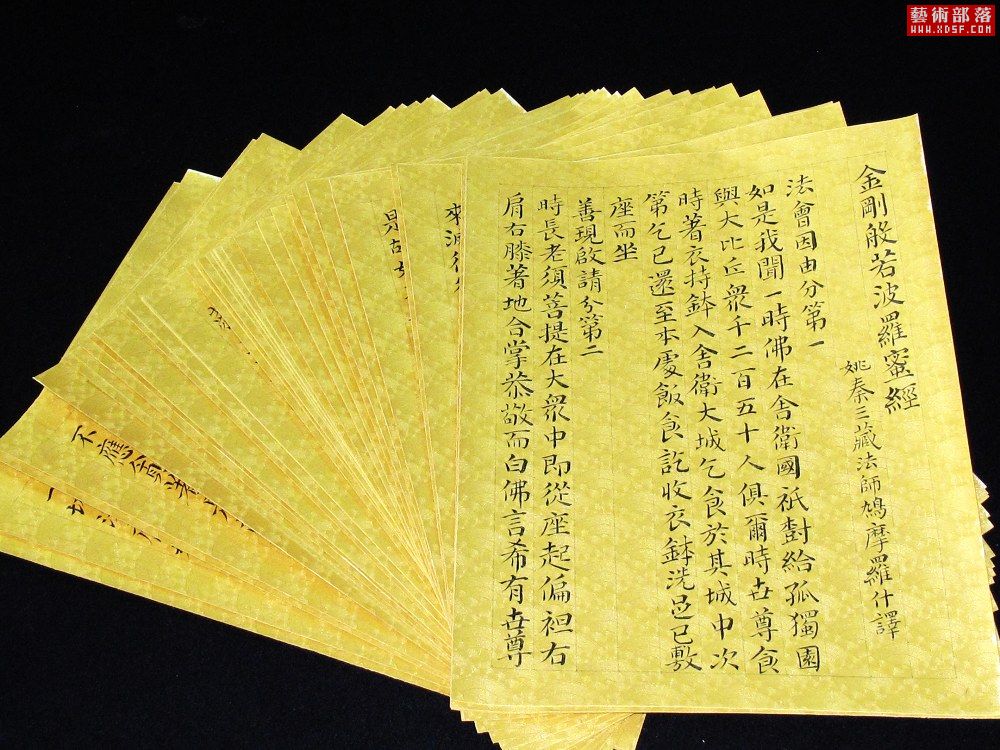 藝術部落
WWW.XDSF.COM
金剛般若波羅蜜經
姚秦三藏法師鳩摩羅什譯
法會因由分第一
如是我聞一時佛在舍衛國祇樹給孤獨園
與大比丘衆千二百五十人俱爾時世尊食
時著衣持鉢入舍衛大城乞食於其城中次
第乞已還至本處飯食訖收衣鉢洗足已敷
座而坐
善現啟請分第二
時長老須菩提在大衆中即從座起偏袒右
肩右膝著地合掌恭敬而白佛言希有世尊
來
是故
不應
一切